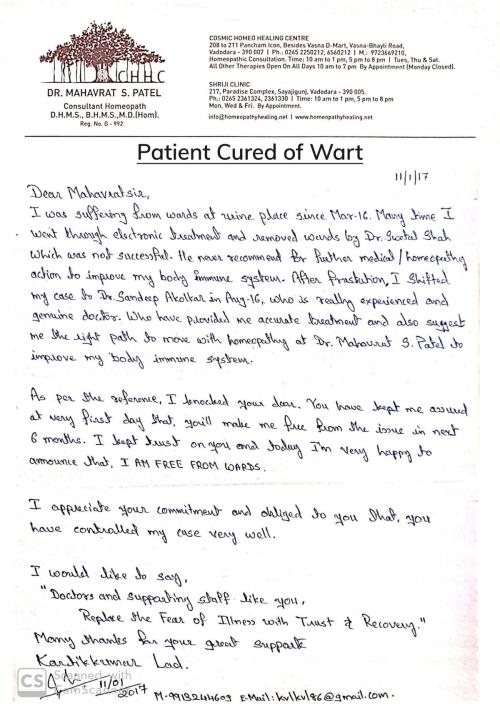 CHHC
DR. MAHAVRAT S. PATEL
Consultant Homeopath
D.H.M.S., B.H.M.S.,M.D.(Hom).
Reg. No. G - 992
COSMIC HOMEO HEALING CENTRE
208 to 211 Pancham Icon, Besides Vasna D-Mart, Vasna-Bhayli Road,
Vadodara - 390 007 | Ph.: 0265 2250212, 6560212 | M.: 9723669210,
Homeopathic Consultation. Time: 10 am to 1 pm, 5 pm to 8 pm | Tues, Thu & Sat.
All Other Therapies Open On All Days 10 am to 7 pm By Appointment (Monday Closed).
SHRIJI CLINIC
217, Paradise Complex, Sayajigunj, Vadodara - 390 005.
Ph.: 0265 2361324, 2361330 | Time: 10 am to 1 pm, 5 pm to 8 pm
Mon, Wed & Fri. By Appointment.
info@homeopathyhealing.net | www.homeopathyhealing.net
Patient Cured of Wart
11/1/17
Dear Mahavratsir,
I was suffering from wards at urine place since Mar-16. Many time I
went through electronic treatment and removed wards by Dr. Swetal Shah
which was not successful. He never recommend for further medical/homeopathy
action to improve my body immune system. After frastation, I shifted
my case to Dr. Sandeep Akolkar in Aug-16, who is really experienced and
genuine doctor. Who have provided me accurate treatment and also suggest
me the right path to move with homeopathy at Dr. Mahavrat S. Patel to
improve my body immune system.
As per the reference, I knocked your door. You have kept me assured
at very first day that, you'll make me free from the issue in next
6 months. I kept trust on you and today I'm very happy to
announce that, I AM FREE FROM WARDS.
I appreciate your commitment and obliged to you that, you
have controlled my case very well.
I would like to say,
"Doctors and supporting staff like you,
Replace the Fear of Illness with Trust & Recovery."
Many thanks for your great support
Kartikkumar Lad.
CS Scanned with
CamScanner
11/01
2017 M-9913244603 E-Mail: kvlkvl86@gmail.com.